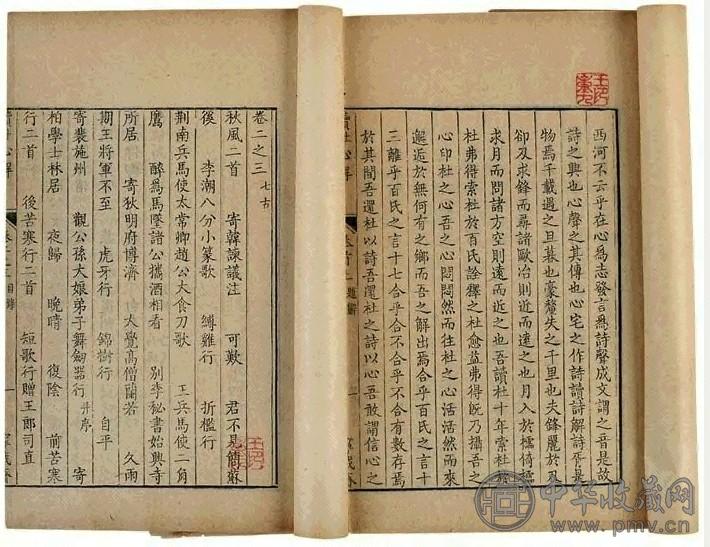 西河不云乎在心爲志發言爲詩聲成文謂之音是故
詩之興也心聲之其傳也心宅之作詩讀詩解詩胥是
物焉千載遇之旦莫也豪釐失之千里也夫鋒麗於刃
卻及求鋒而尋諸歐冶則近而遠之也月入於櫺倚
求月而問諸方空則遠而近之也吾讀杜十年索杜於
杜弗得索杜於百氏詮釋之杜愈益弗得旣乃攝吾之
心印杜之心吾之心悶悶然而往杜之心活活然而來
邂逅於無何有之鄉而吾之解出焉合乎百氏之言十
三離乎百氏之言十七合乎合不合乎不合有數存焉
於其間吾還杜以詩吾還杜之詩以心吾敢謂信心之
讀杜心解
卷首上
一
寧我齋
卷二之三 七古
秋風二首 寄韓諫議注 可歎 君不見簡蘇
徯 李潮八分小篆歌 縛雞行 折檻行
荆南兵馬使太常卿趙公大食刀歌 王兵馬使二角
鷹 醉爲馬墜諸公攜酒相看 別李秘書始興寺
所居 寄狄明府博濟 大覺高僧蘭若 久雨
期王將軍不至 虎牙行 錦樹行 自平
寄裴施州 觀公孫大娘弟子舞劒器行 并序 寄
柏學士林居 夜歸 晚晴 復陰 前苦寒
行二首 後苦寒行二首 短歌行贈王郎司直
讀杜心解
一
寧我齋
中华收藏网
www.pmv.cn